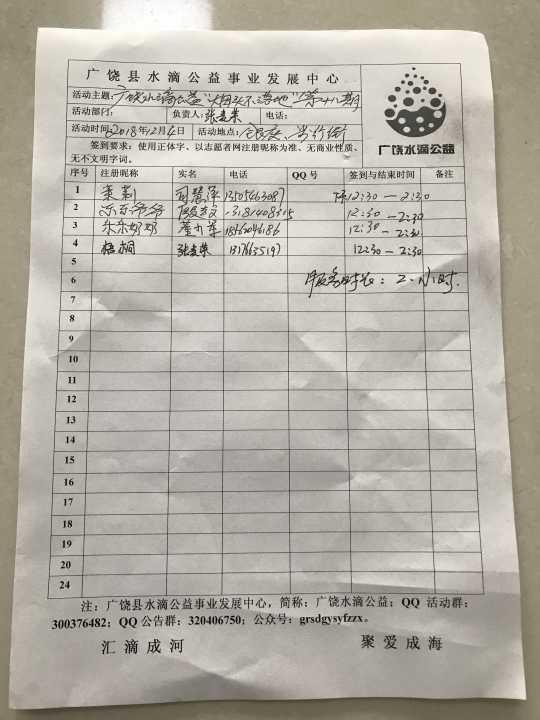 广饶县水滴公益事业发展中心
活动主题:广饶水滴公益"烟头不落地"第十八期
活动部门: 负责人:张爱荣 电话:
活动时间:2018年12月 日 活动地点:
签到要求:使用正体字、以志愿者网注册昵称为准、无商业性质、
无不文明字词。
广饶水滴公益
序号 注册昵称 实名 电话 QQ 号 签到与结束时间 备注
1 茉莉 下12:30—2:30
2 乐乐爷爷 12:30—2:30
3 乐乐奶奶 12:30—2:30
4 梧桐 张爱荣 12:30—2:30
5
6 服务时长:2小时.
7
8
9
10
11
12
13
14
15
16
17
18
19
20
24
注:广饶县水滴公益事业发展中心,简称:广饶水滴公益;QQ 活动群:
300376482;QQ 公告群:320406750;公众号:grsdgysyfzzx。
汇滴成河 聚爱成海